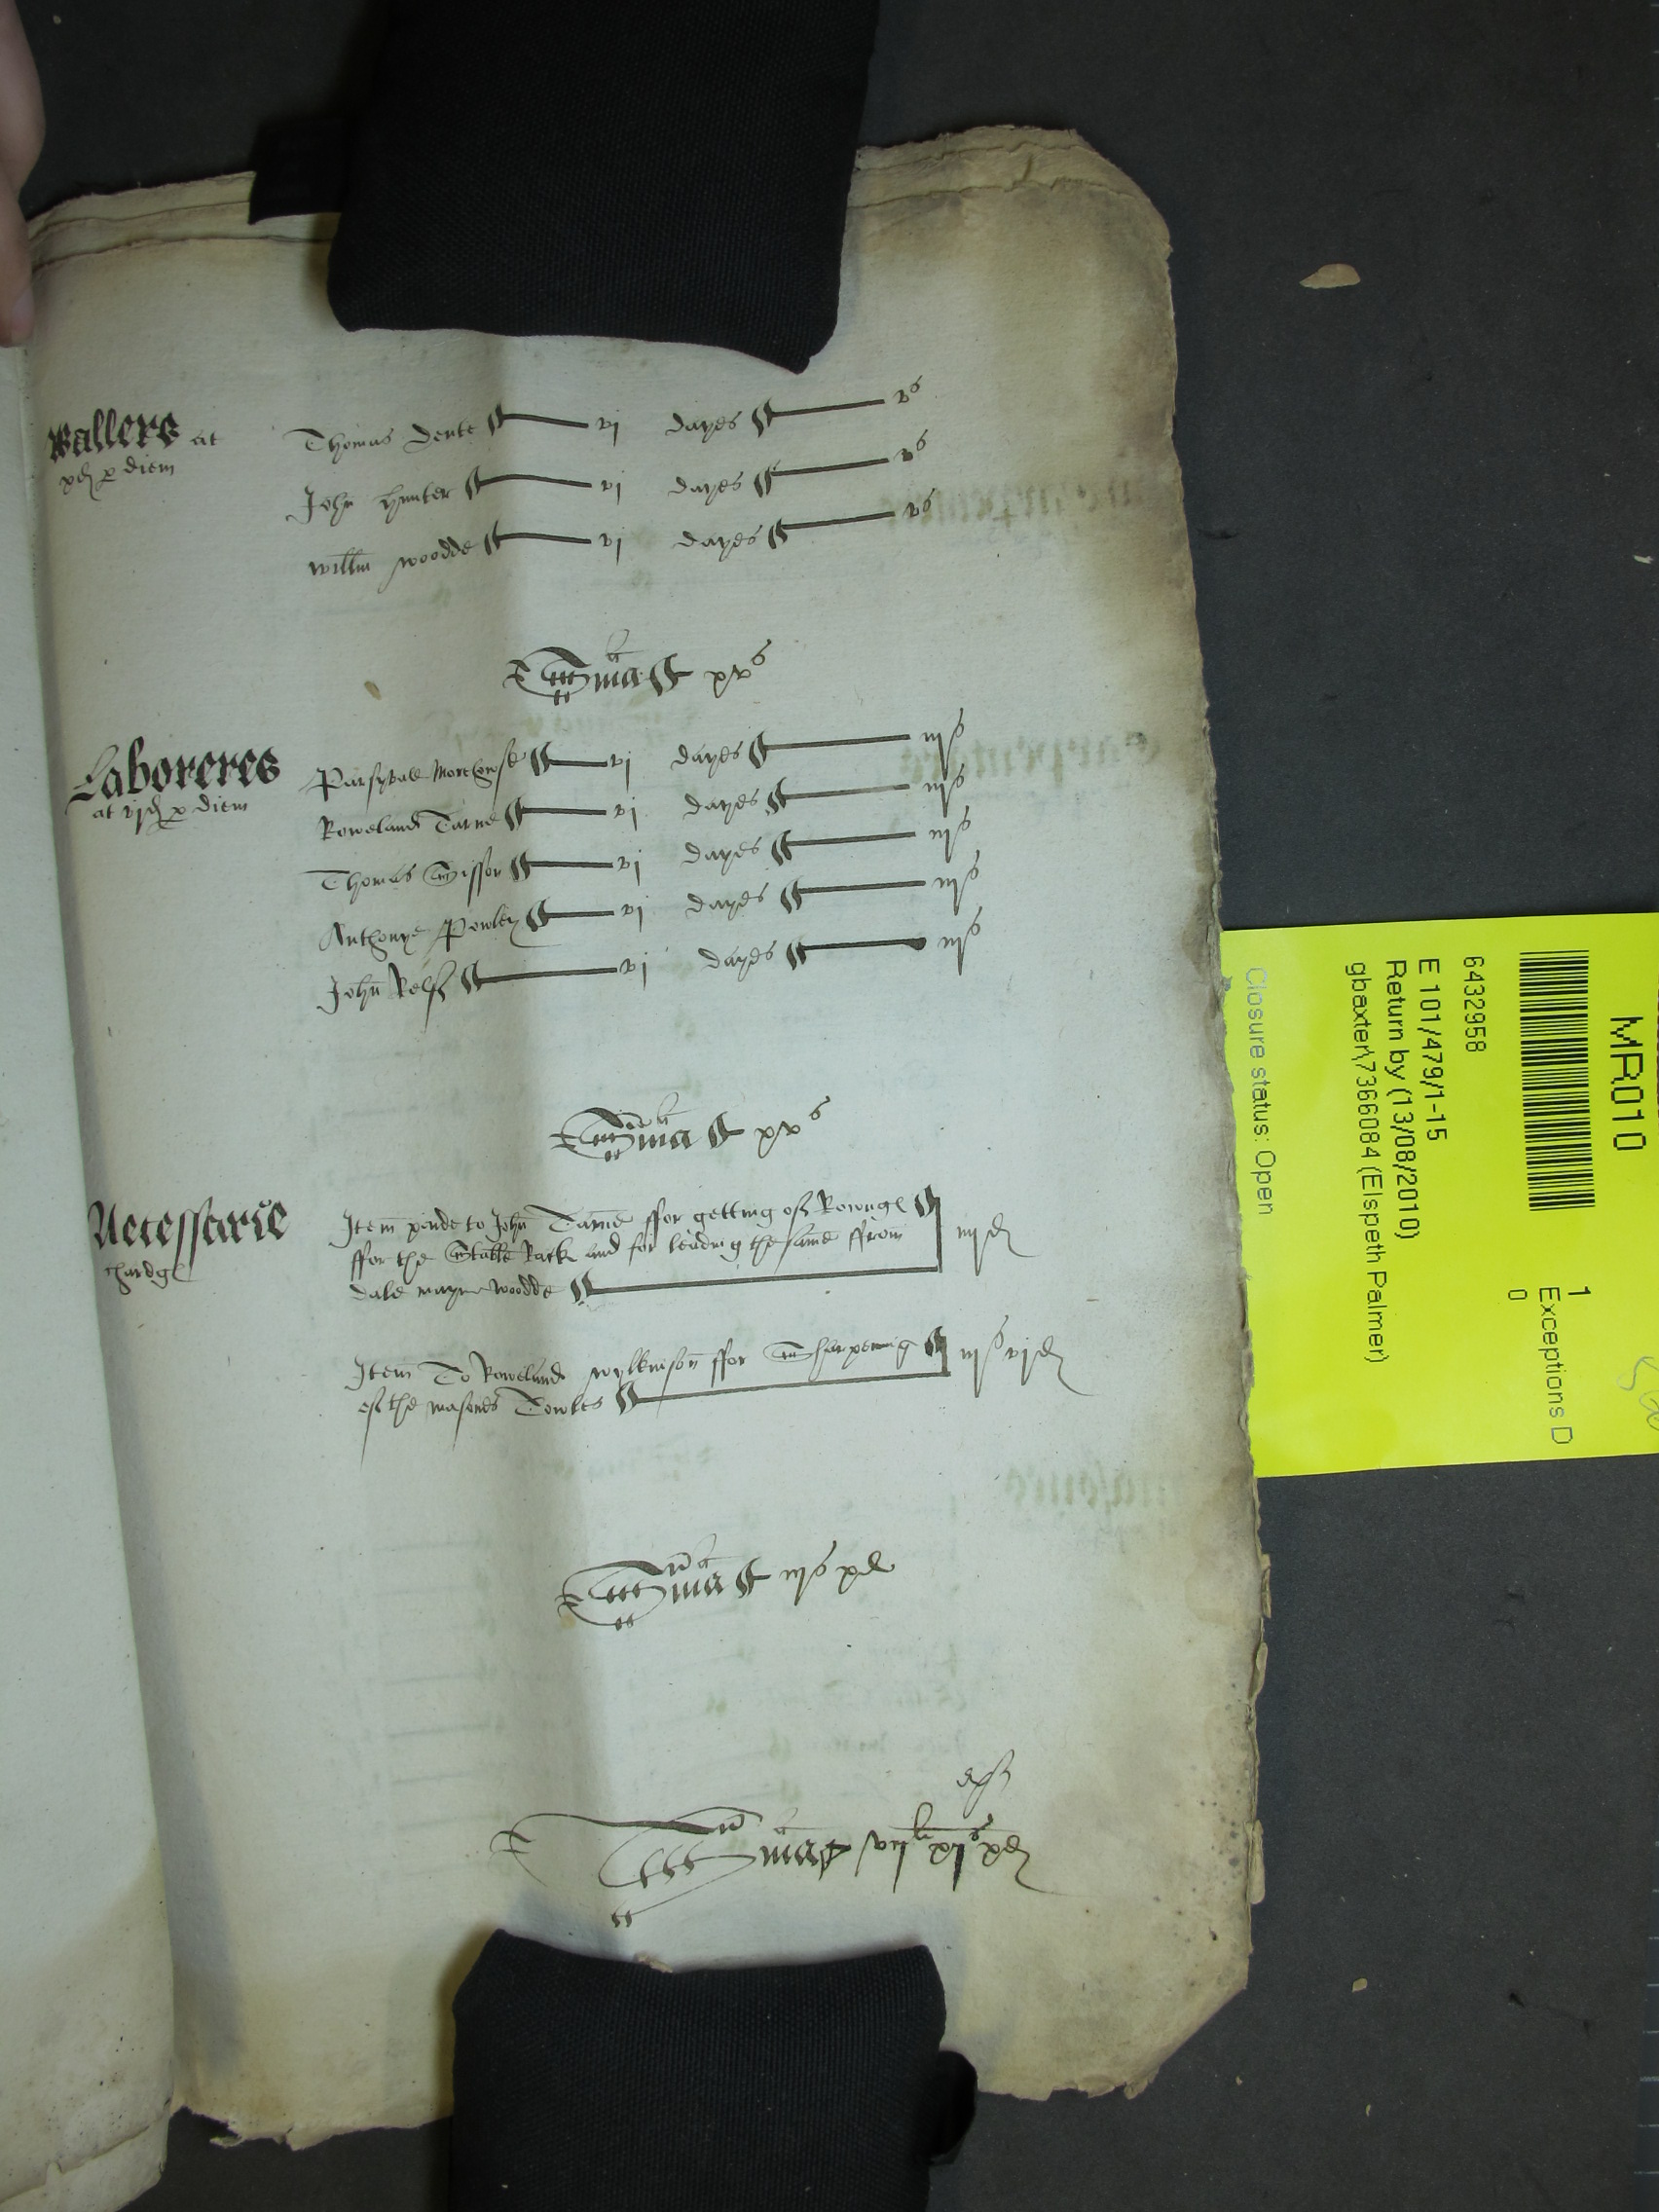 Wallers at
xd p diem
Thomas Dente vj dayes vs
John hunter vj dayes vs
Willm Woodde vj dayes vs
Sma xvs
Laboreres
at vjd p diem
Parsyvall Morehouse vj dayes iijs
Rowland Tarne vj dayes iijs
Thomas Sisson vj dayes iijs
Anthonye Powley vj dayes iijs
John Relf vj dayes iijs
Sma xvs
Necessarie
chardg
Item paide to John Tarne ffor getting of
ffor the Stable Rack and for leading the same ffrom
dale mayne woodde iiijd
Item To Rowland Wylkinson ffor Sharpening
of the masones Towles iijs vjd
Sma iijs xd
Sma viijli xjs xd
MR010
6432958
E 101/479/1-15
Return by (13/08/2010)
gbaxter\7366084 (Elspeth Palmer)
Closure status: Open
1
Exceptions D
0